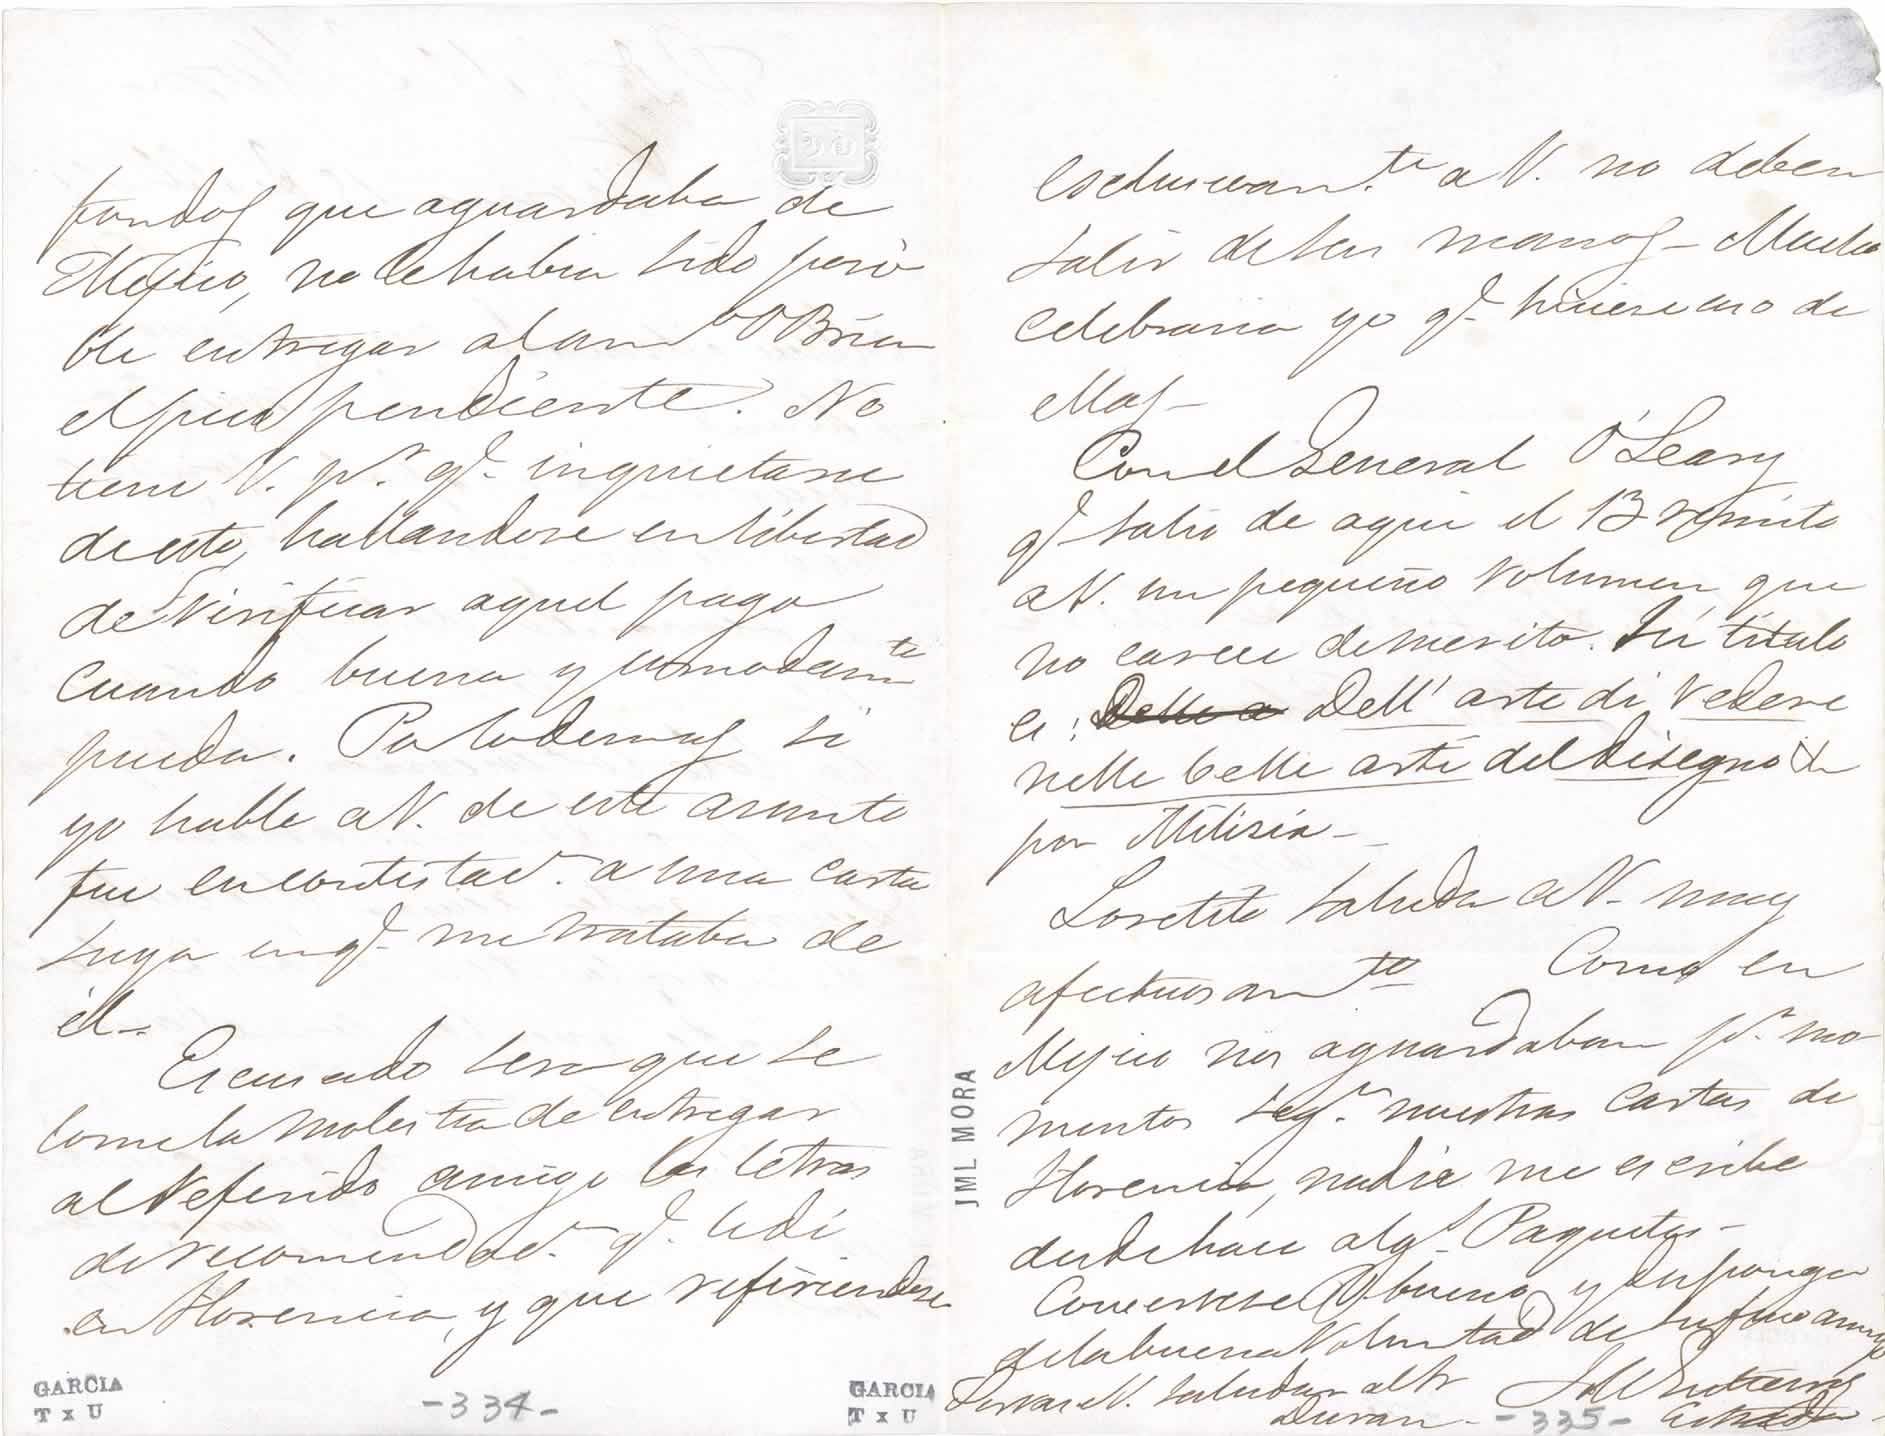 fondos que aguardaba de
Mejico, no le habia sido posi-
ble entregar al am.º O'Brien
el pico pendiente. No
tiene V. p.r q.e inquietarse
de esto, hallandose en libertad
de verificar aquel pago
cuando buena y comodam.te
pueda. Por lo demas si
yo hablé a V. de este asunto
fue en contestac.n a una carta
suya en q.e me trataba de
él—
Escusado sera que se
tome la molestia de entregar
al referido amigo las letras
de recomendac.n q.e le di
en Florencia, y que refiriendose
GARCIA
T x U
-334-
GARCIA
T x U
JML MORA
esclusivam.te a V. no deben
salir de sus manos— Mucho
celebraria yo q.e hiciese uso de
ellas—
Con el General O'Leary
q.e salió de aqui el 13 remito
a V. un pequeño volumen, que
no carece de merito. Su titulo
es: Della Dell' arte di vedere
nelle belle arti del disegno &
por Milizia—
Loretito saluda a V. muy
afectuosam.te Como en
Mejico nos aguardaban p.r mo-
mentos seg.n nuestras cartas de
Florencia, nadie me escribe
desde hace alg.s Paquetes—
Conservese V. bueno y disponga
de la buena voluntad de su fino amigo
J M Gutierrez
Estrada
Sirvase V. saludar al Sr
Duran—
-335-